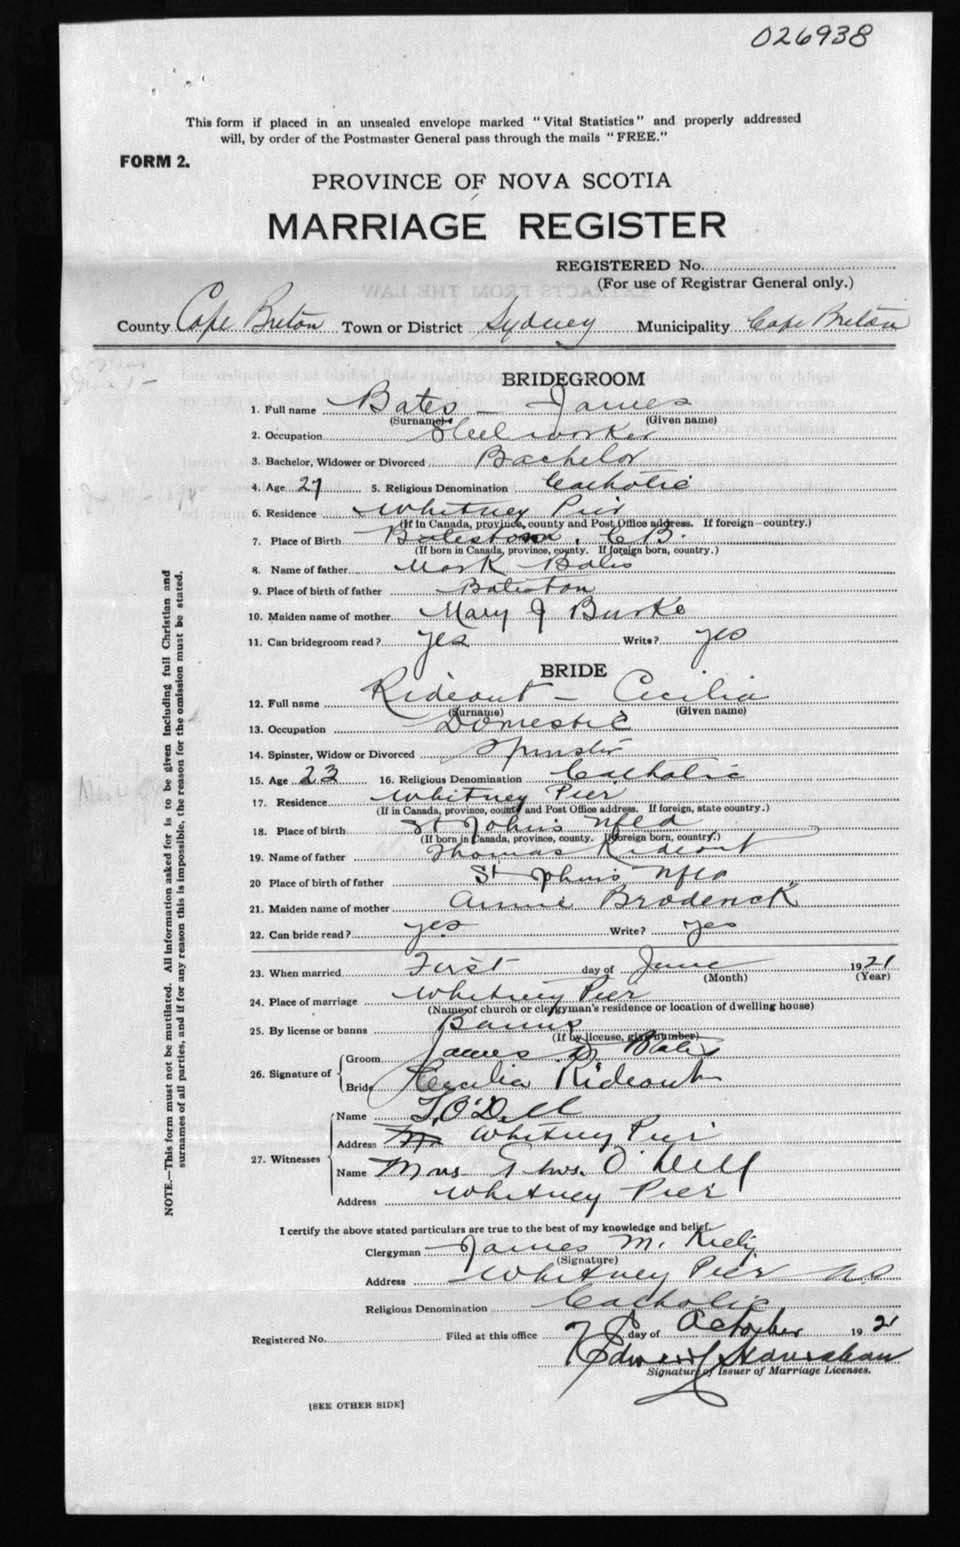 026938
This form if placed in an unsealed envelope marked "Vital Statistics" and properly addressed
will, by order of the Postmaster General pass through the mails "FREE."
FORM 2.
PROVINCE OF NOVA SCOTIA
MARRIAGE REGISTER
REGISTERED No.
(For use of Registrar General only.)
County Cape Breton Town or District Sydney Municipality Cape Breton
BRIDEGROOM
1. Full name Bates - James
(Surname) (Given name)
2. Occupation Steel worker
3. Bachelor, Widower or Divorced Bachelor
4. Age 27 5. Religious Denomination Catholic
6. Residence Whitney Pier
(If in Canada, province, county and Post Office address. If foreign—country.)
7. Place of Birth Bateston, C.B.
(If born in Canada, province, county. If foreign born, country.)
8. Name of father Mark Bates
9. Place of birth of father Bateston
10. Maiden name of mother Mary J Burke
11. Can bridegroom read? yes Write? yes
BRIDE
12. Full name Rideout - Cecilia
(Surname) (Given name)
13. Occupation Domestic
14. Spinster, Widow or Divorced Spinster
15. Age 23 16. Religious Denomination Catholic
17. Residence Whitney Pier
(If in Canada, province, county and Post Office address. If foreign, state country.)
18. Place of birth St John's Nfld
(If born in Canada, province, county. If foreign born, country.)
19. Name of father Thomas Rideout
20 Place of birth of father St John's Nfld
21. Maiden name of mother Annie Broderick
22. Can bride read? yes Write? yes
23. When married First day of June 1921
(Month) (Year)
24. Place of marriage Whitney Pier
(Name of church or clergyman's residence or location of dwelling house)
25. By license or banns Banns
(If by license, give number)
26. Signature of
Groom James D. Bates
Bride Cecilia Rideout
27. Witnesses
Name T. O'Dell
Address Whitney Pier
Name Mrs Thos. O'Dell
Address Whitney Pier
I certify the above stated particulars are true to the best of my knowledge and belief.
Clergyman James M. Kiely
(Signature)
Address Whitney Pier N.S
Religious Denomination Catholic
Registered No. Filed at this office day of October 1921
Edward
Signature of Issuer of Marriage Licenses.
[SEE OTHER SIDE]
NOTE.—This form must not be mutilated. All information asked for is to be given including full Christian and
surnames of all parties, and if for any reason this is impossible, the reason for the omission must be stated.